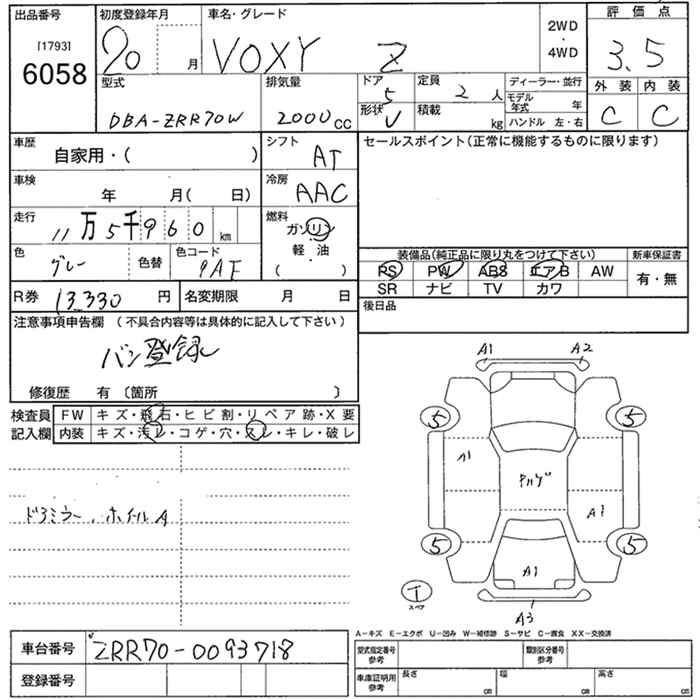 出品番号 初度登録年月 車名・グレード 2WD ・ 4WD 評価点
[1793] 20 月 VOXY Z 3.5
6058
型式 排気量 ドア 5 定員 2 人 ディーラー・並行 外装 内装
DBA-ZRR70W 2000 CC 形状 V 積載 kg モデル年式 年 C C
ハンドル 左・右
車歴 自家用・( ) シフト AT セールスポイント(正常に機能するものに限ります)
車検 年 月( 日) 冷房 AAC
走行 11万5千960 km 燃料 ガソリン
軽・油
( )
色 グレー 色替 色コード 9AF
装備品(純正品に限り丸をつけて下さい) 新車保証書
PS PW ABS エアB AW 有・無
SR ナビ TV カワ
R券 13,330 円 名変期限 月 日 後日品
注意事項申告欄 (不具合内容等は具体的に記入して下さい)
バン登録
修復歴 有 〔箇所 〕
検査員 FW キズ・飛石・ヒビ割・リペア跡・X要
記入欄 内装 キズ・汚レ・コゲ・穴・スレ・キレ・破レ
ドアミラー、ホイールA
A1 A2
5 5
A1
A1
5 5
A1
T
スペア
A3
A-キズ E-エクボ U-凹み W-補修跡 S-サビ C-腐食 XX-交換済
車台番号 ZRR70-0093718 型式指定番号 参考 類別区分番号 参考
登録番号 車庫証明用 参考 長さ cm 幅 cm 高さ cm